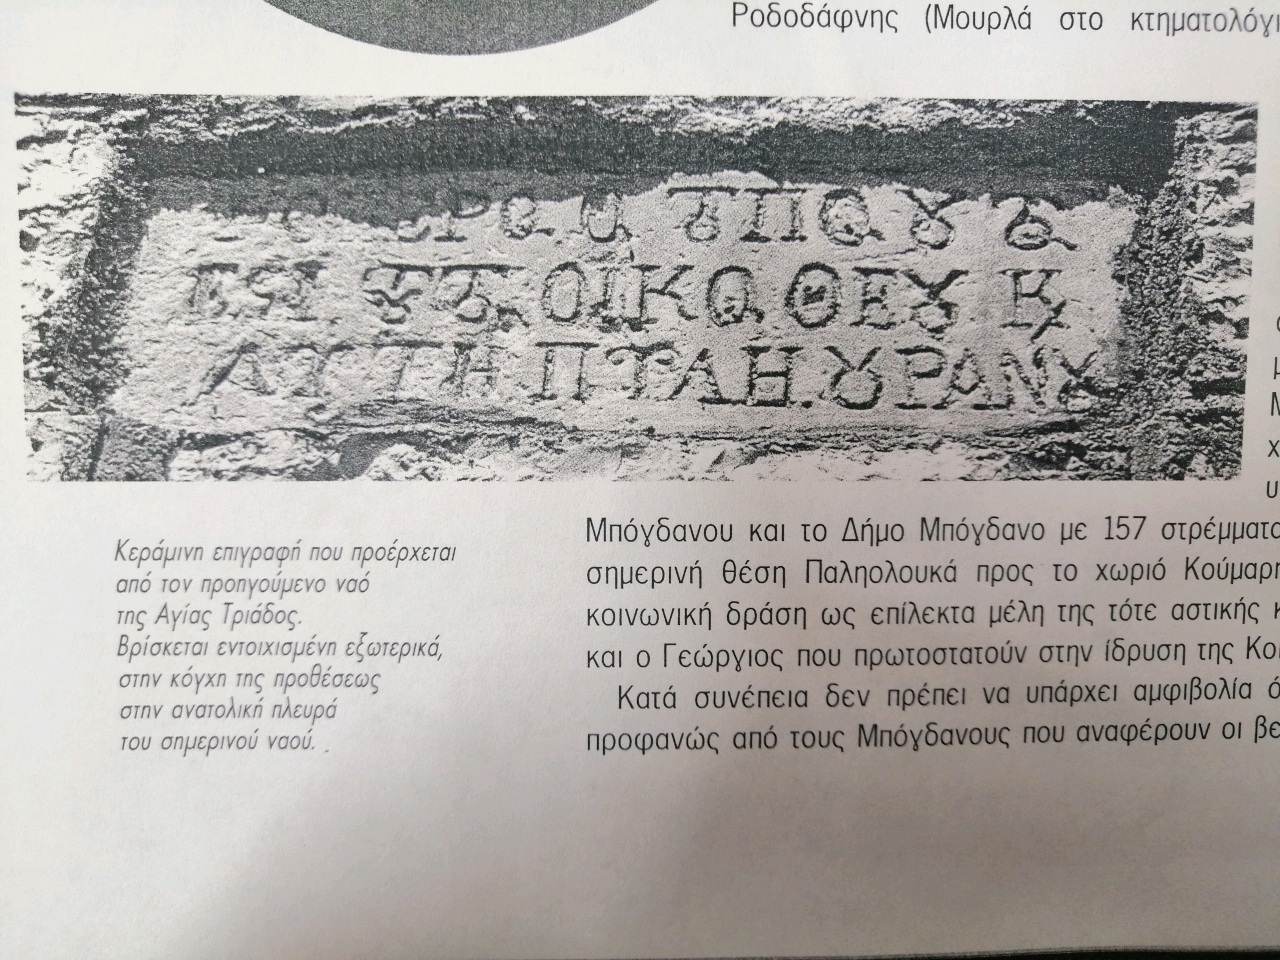 Ροδοδάφνης (Μουρλά στο κτηματολόγι
ΤΠΟΥ
ΕΣΙ ΟΙΚΟ ΘΕΥ Κ
ΑΥΤΗ Π ΤΛΗ ΟΥΡΑΝΥ
Μπόγδανου και το Δήμο Μπόγδανο με 157 στρέμματα
σημερινή θέση Παληολουκά προς το χωριό Κούμαρη
κοινωνική δράση ως επίλεκτα μέλη της τότε αστικής κ
και ο Γεώργιος που πρωτοστατούν στην ίδρυση της Κοι
Κατά συνέπεια δεν πρέπει να υπάρχει αμφιβολία ό
προφανώς από τους Μπόγδανους που αναφέρουν οι βε
Κεράμινη επιγραφή που προέρχεται
από τον προηγούμενο ναό
της Αγίας Τριάδος.
Βρίσκεται εντοιχισμένη εξωτερικά,
στην κόγχη της προθέσεως
στην ανατολική πλευρά
του σημερινού ναού.